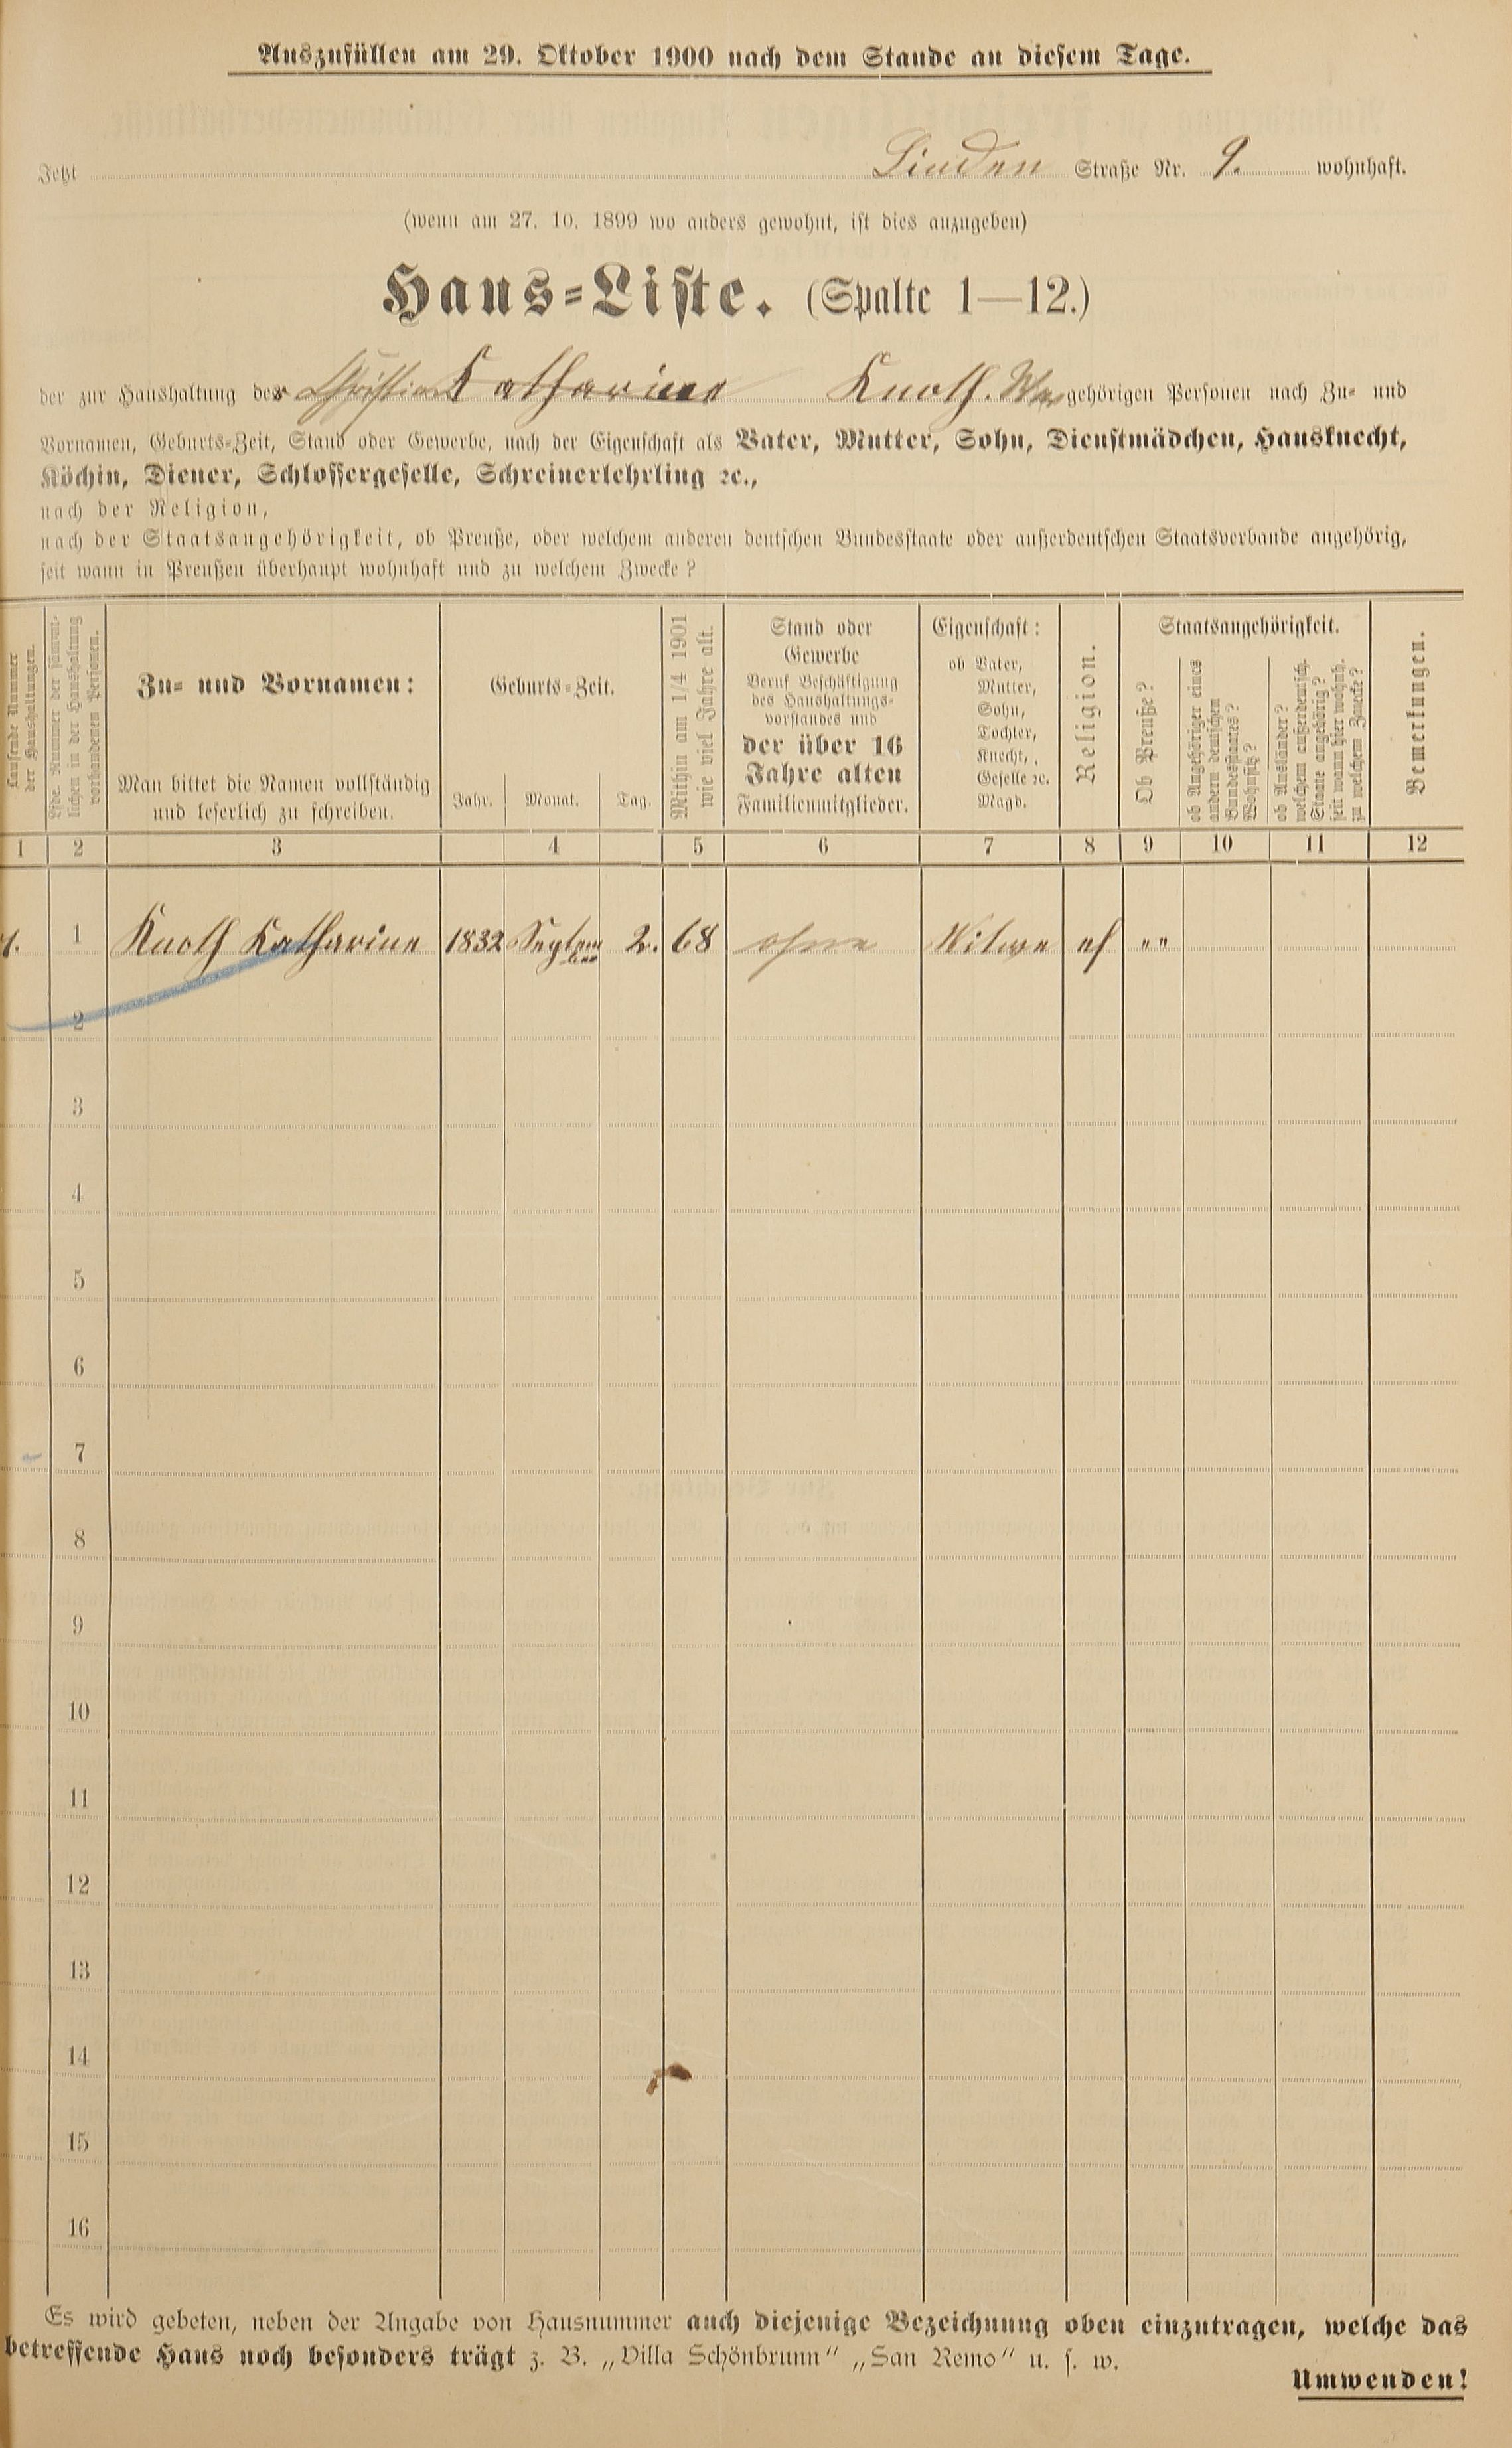 Auszufüllen am 29. Oktober 1900 nach dem Stande an diesem Tage.
Jetzt Linden Straße Nr. 9. wohnhaft.
(wenn am 27. 10. 1899 wo anders gewohnt, ist dies anzugeben)
Haus-Liste. (Spalte 1—12.)
der zur Haushaltung der Christian Katharine Knoth. Wwe gehörigen Personen nach Zu- und
Vornamen, Geburts-Zeit, Stand oder Gewerbe, nach der Eigenschaft als Vater, Mutter, Sohn, Dienstmädchen, Hausknecht,
Köchin, Diener, Schlossergeselle, Schreinerlehrling ꝛc.,
nach der Religion,
nach der Staatsangehörigkeit, ob Preuße, oder welchem anderen deutschen Bundesstaate oder außerdeutschen Staatsverbande angehörig,
seit wann in Preußen überhaupt wohnhaft und zu welchem Zwecke?
Laufende Nummer
der Haushaltungen.
Lfde. Nummer der sämmt-
lichen in der Haushaltung
vorhandenen Personen.
Zu- und Vornamen:
Man bittet die Namen vollständig
und leserlich zu schreiben.
Geburts-Zeit.
Jahr. Monat. Tag.
Mithin am 1/4 1901
wie viel Jahre alt.
Stand oder
Gewerbe
Beruf Beschäftigung
des Haushaltungs-
vorstandes und
der über 16
Jahre alten
Familienmitglieder.
Eigenschaft:
ob Vater,
Mutter,
Sohn,
Tochter,
Knecht,
Geselle ꝛc.
Magd.
Religion.
Staatsangehörigkeit.
Ob Preuße?
ob Angehöriger eines
andern deutschen
Bundesstaates?
Wohnsitz?
ob Ausländer?
welchem außerdeutsch.
Staate angehörig?
seit wann hier wohnh.
zu welchem Zwecke?
Bemerkungen.
1 2 3 4 5 6 7 8 9 10 11 12
1 Knoth Katharine 1832 Septem 2. 68 ohne Witwe ef „ „
ber
2
3
4
5
6
7
8
9
10
11
12
13
14
15
16
Es wird gebeten, neben der Angabe von Hausnummer auch diejenige Bezeichnung oben einzutragen, welche das
betreffende Haus noch besonders trägt z. B. „Villa Schönbrunn“ „San Remo“ u. s. w.
Umwenden!